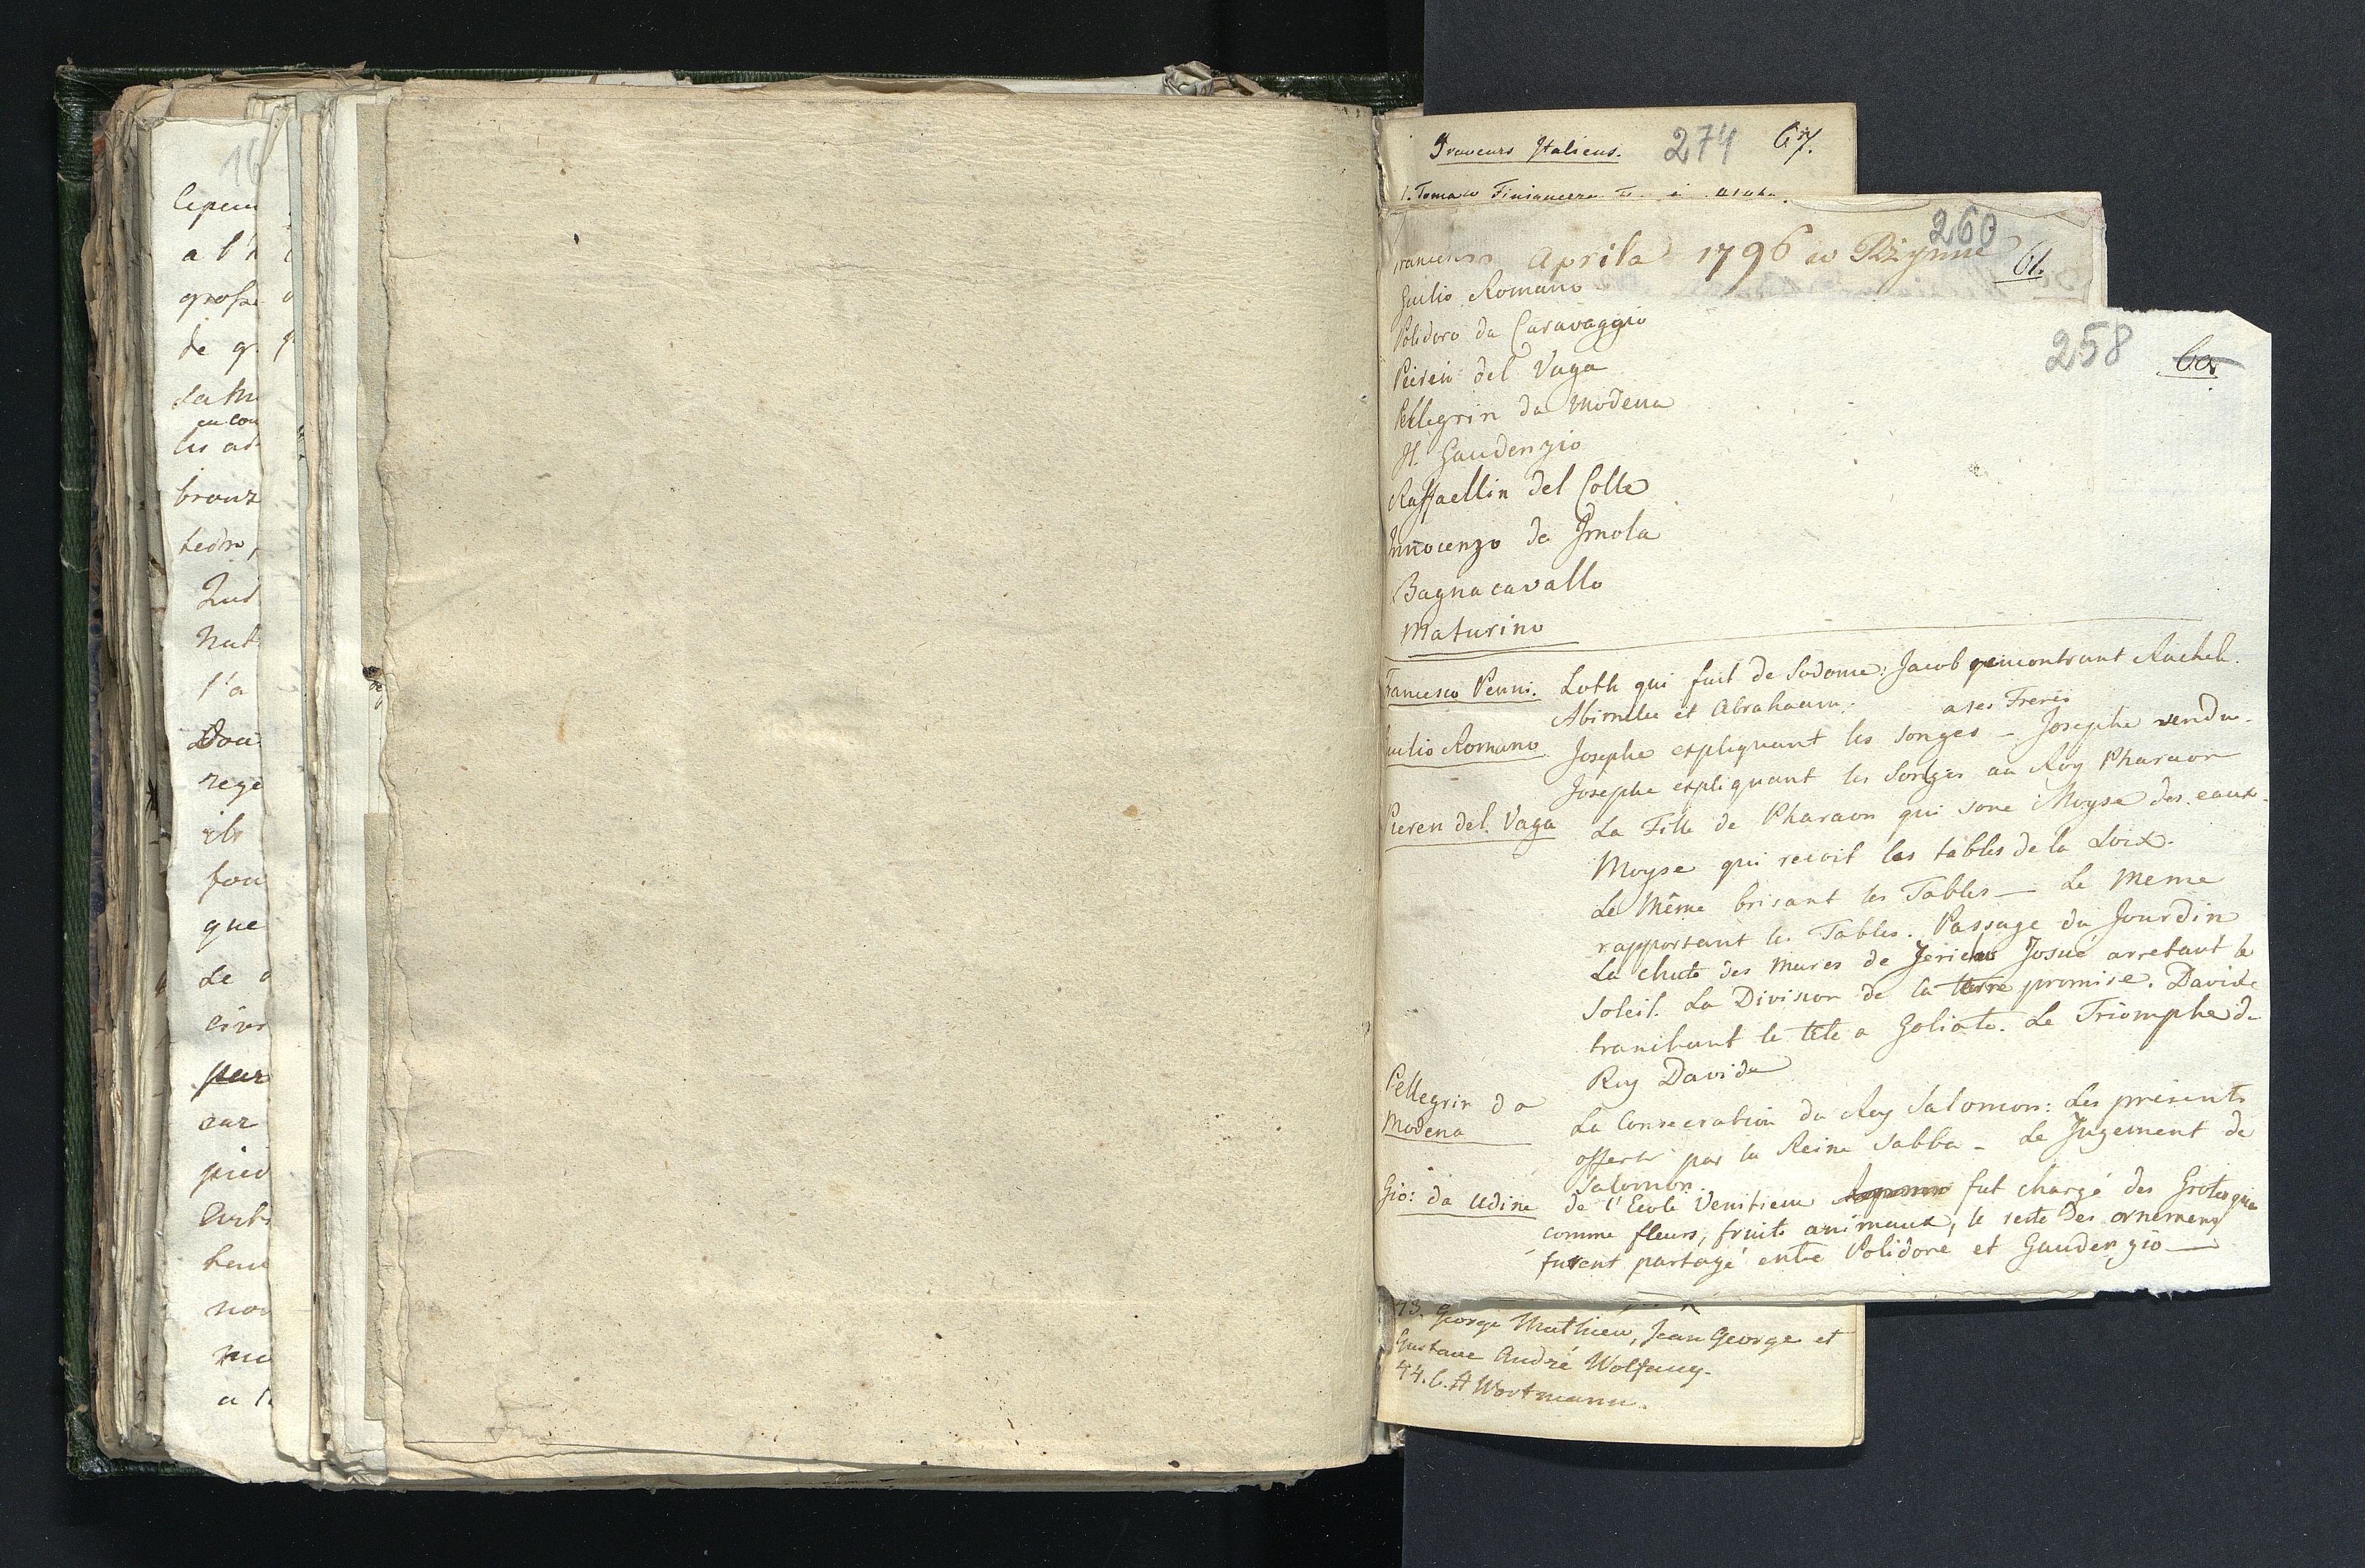 16
lepeu
a l'h
grosse
de g.
la m
en cou
les ad
bronz
tedn,
Jud
nat
l'a
Dou
rege
ils
fou
que
Le d
cive
par
car
pied
Arti
tene
nou
a t
Graveurs Italiens. 274 67.
1. Tomaso Finiguerra
Aprila 1796 w Rzymie 260 61.
258 60.
Francesco
Giulio Romano
Polidoro da Caravaggio
Peirin del Vaga
Pellegrin da Modena
Il Gaudenzio
Raffaellin del Colle
Innocenzo da Jmola
Bagnacavallo
Maturino
Francesco Penni. Loth qui fuit de Sodome: Jacob rencontrant Rachel.
Abimelec et Abrahaam.
a ses Freres
Giulio Romano Josephe expliquant les songes – Josephe vendu.
Josephe expliquant les Songes au Roy Pharaon
Pieren del Vaga La Fille de Pharaon qui sove Moyse des eaux.
Moyse qui recoit les tables de la Loix.
Le Même brisant les Tables — Le meme
rapportant les Tables. Passage du Jourdin
La chute des mures de Jericho Josué arretant le
Soleil. La Division de la terre promise. Davide
tranchant le tête a Goliate. Le Triomphe du
Roy Davide
Pellegrin da
Modena
La Consecration du Roy Salomon: Les presents
offerts par la Reine Sabba – Le Jugement de
Salomon.
Gio: da Udine de l'Ecole Venitiene fut chargé des Grotesque
comme fleurs, fruits animaux, le reste des ornemens
furent partagé entre Polidore et Gaudenzio —
73. George Mathieu, Jean George et
Gustave André Wolfgang.
74. C. A Wortmann.